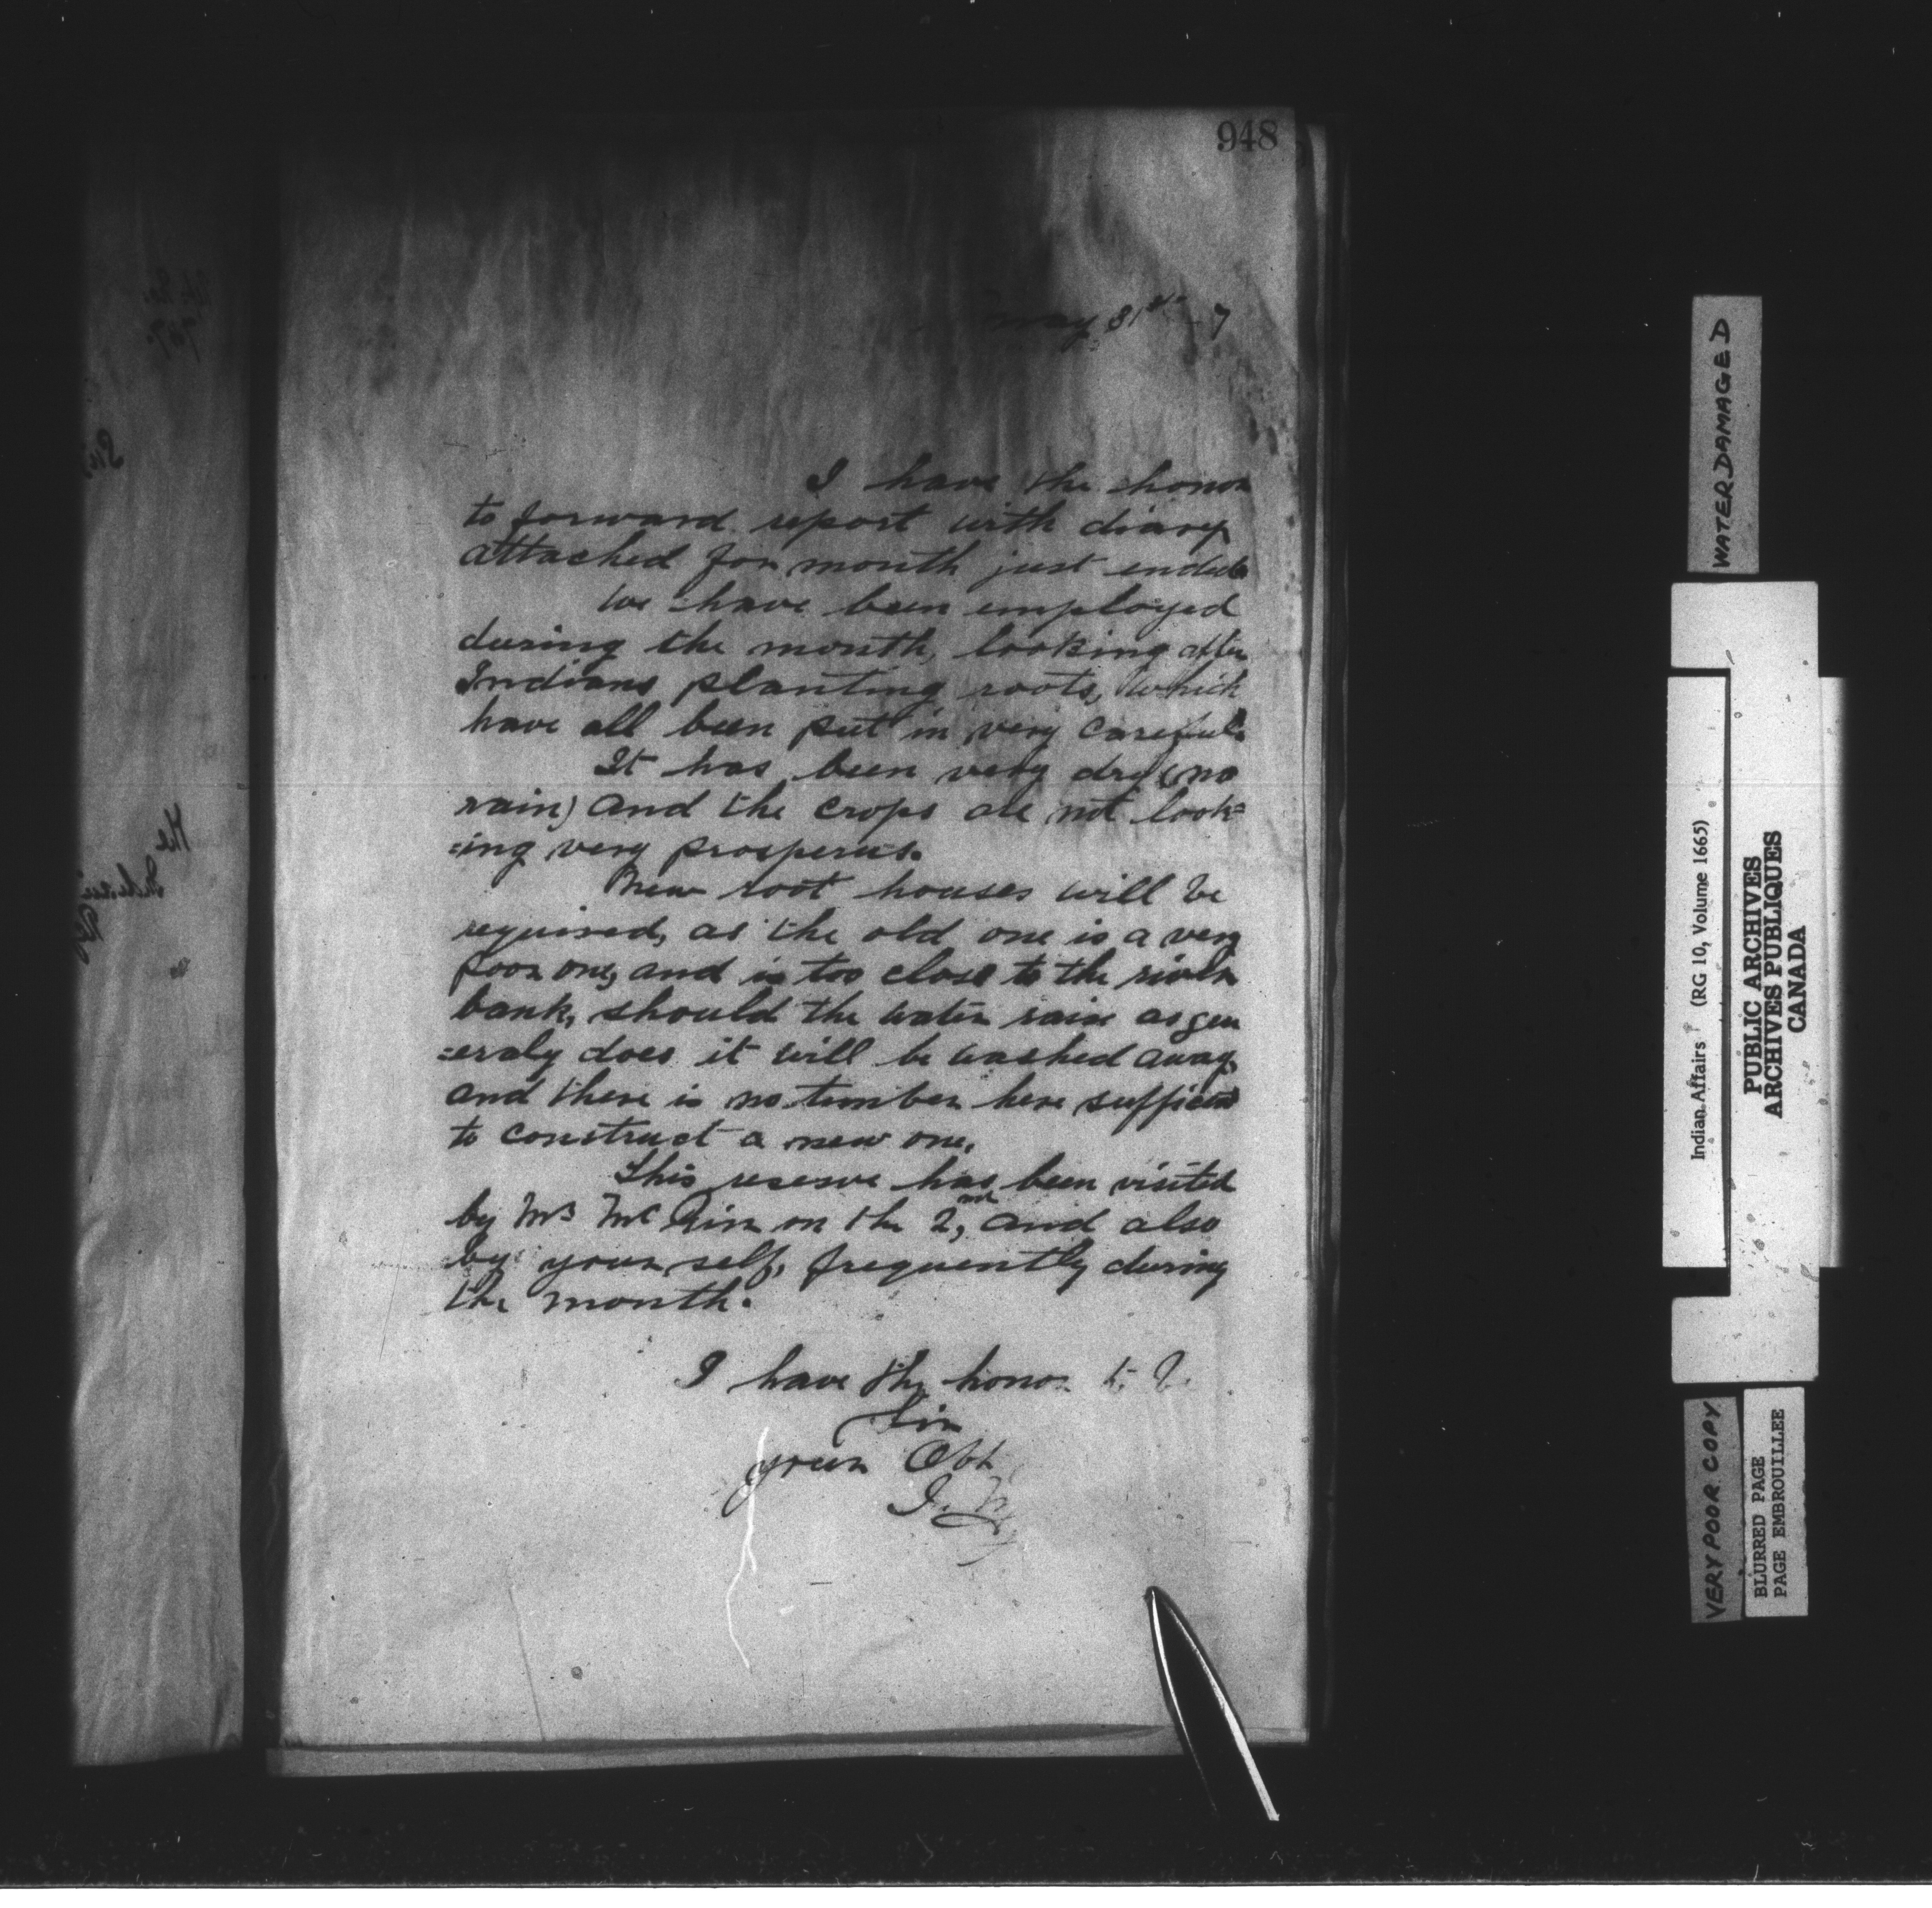 948
May 31st 7
I have the honor
to forward report with diary
attached for month just ended
We have been employed
during the month, looking after
Indians planting roots, which
have all been put in very careful
It has been very dry (no
rain) and the crops are not look=
=ing very prosperus.
New root houses will be
required, as the old one is a very
poor one, and is too close to the river
bank, should the water raise as gen
=eraly does it will be washed away,
and there is no timber here sufficient
to construct a new one.
This reserve has been visited
by Mr Mc on the 2nd, and also
by your self, frequently during
the month.
I have the honor to be
Sir
your Obt
WATER DAMAGED
Indian Affairs (RG 10, Volume 1665)
PUBLIC ARCHIVES
ARCHIVES PUBLIQUES
CANADA
VERY POOR COPY
BLURRED PAGE
PAGE EMBROUILLEE